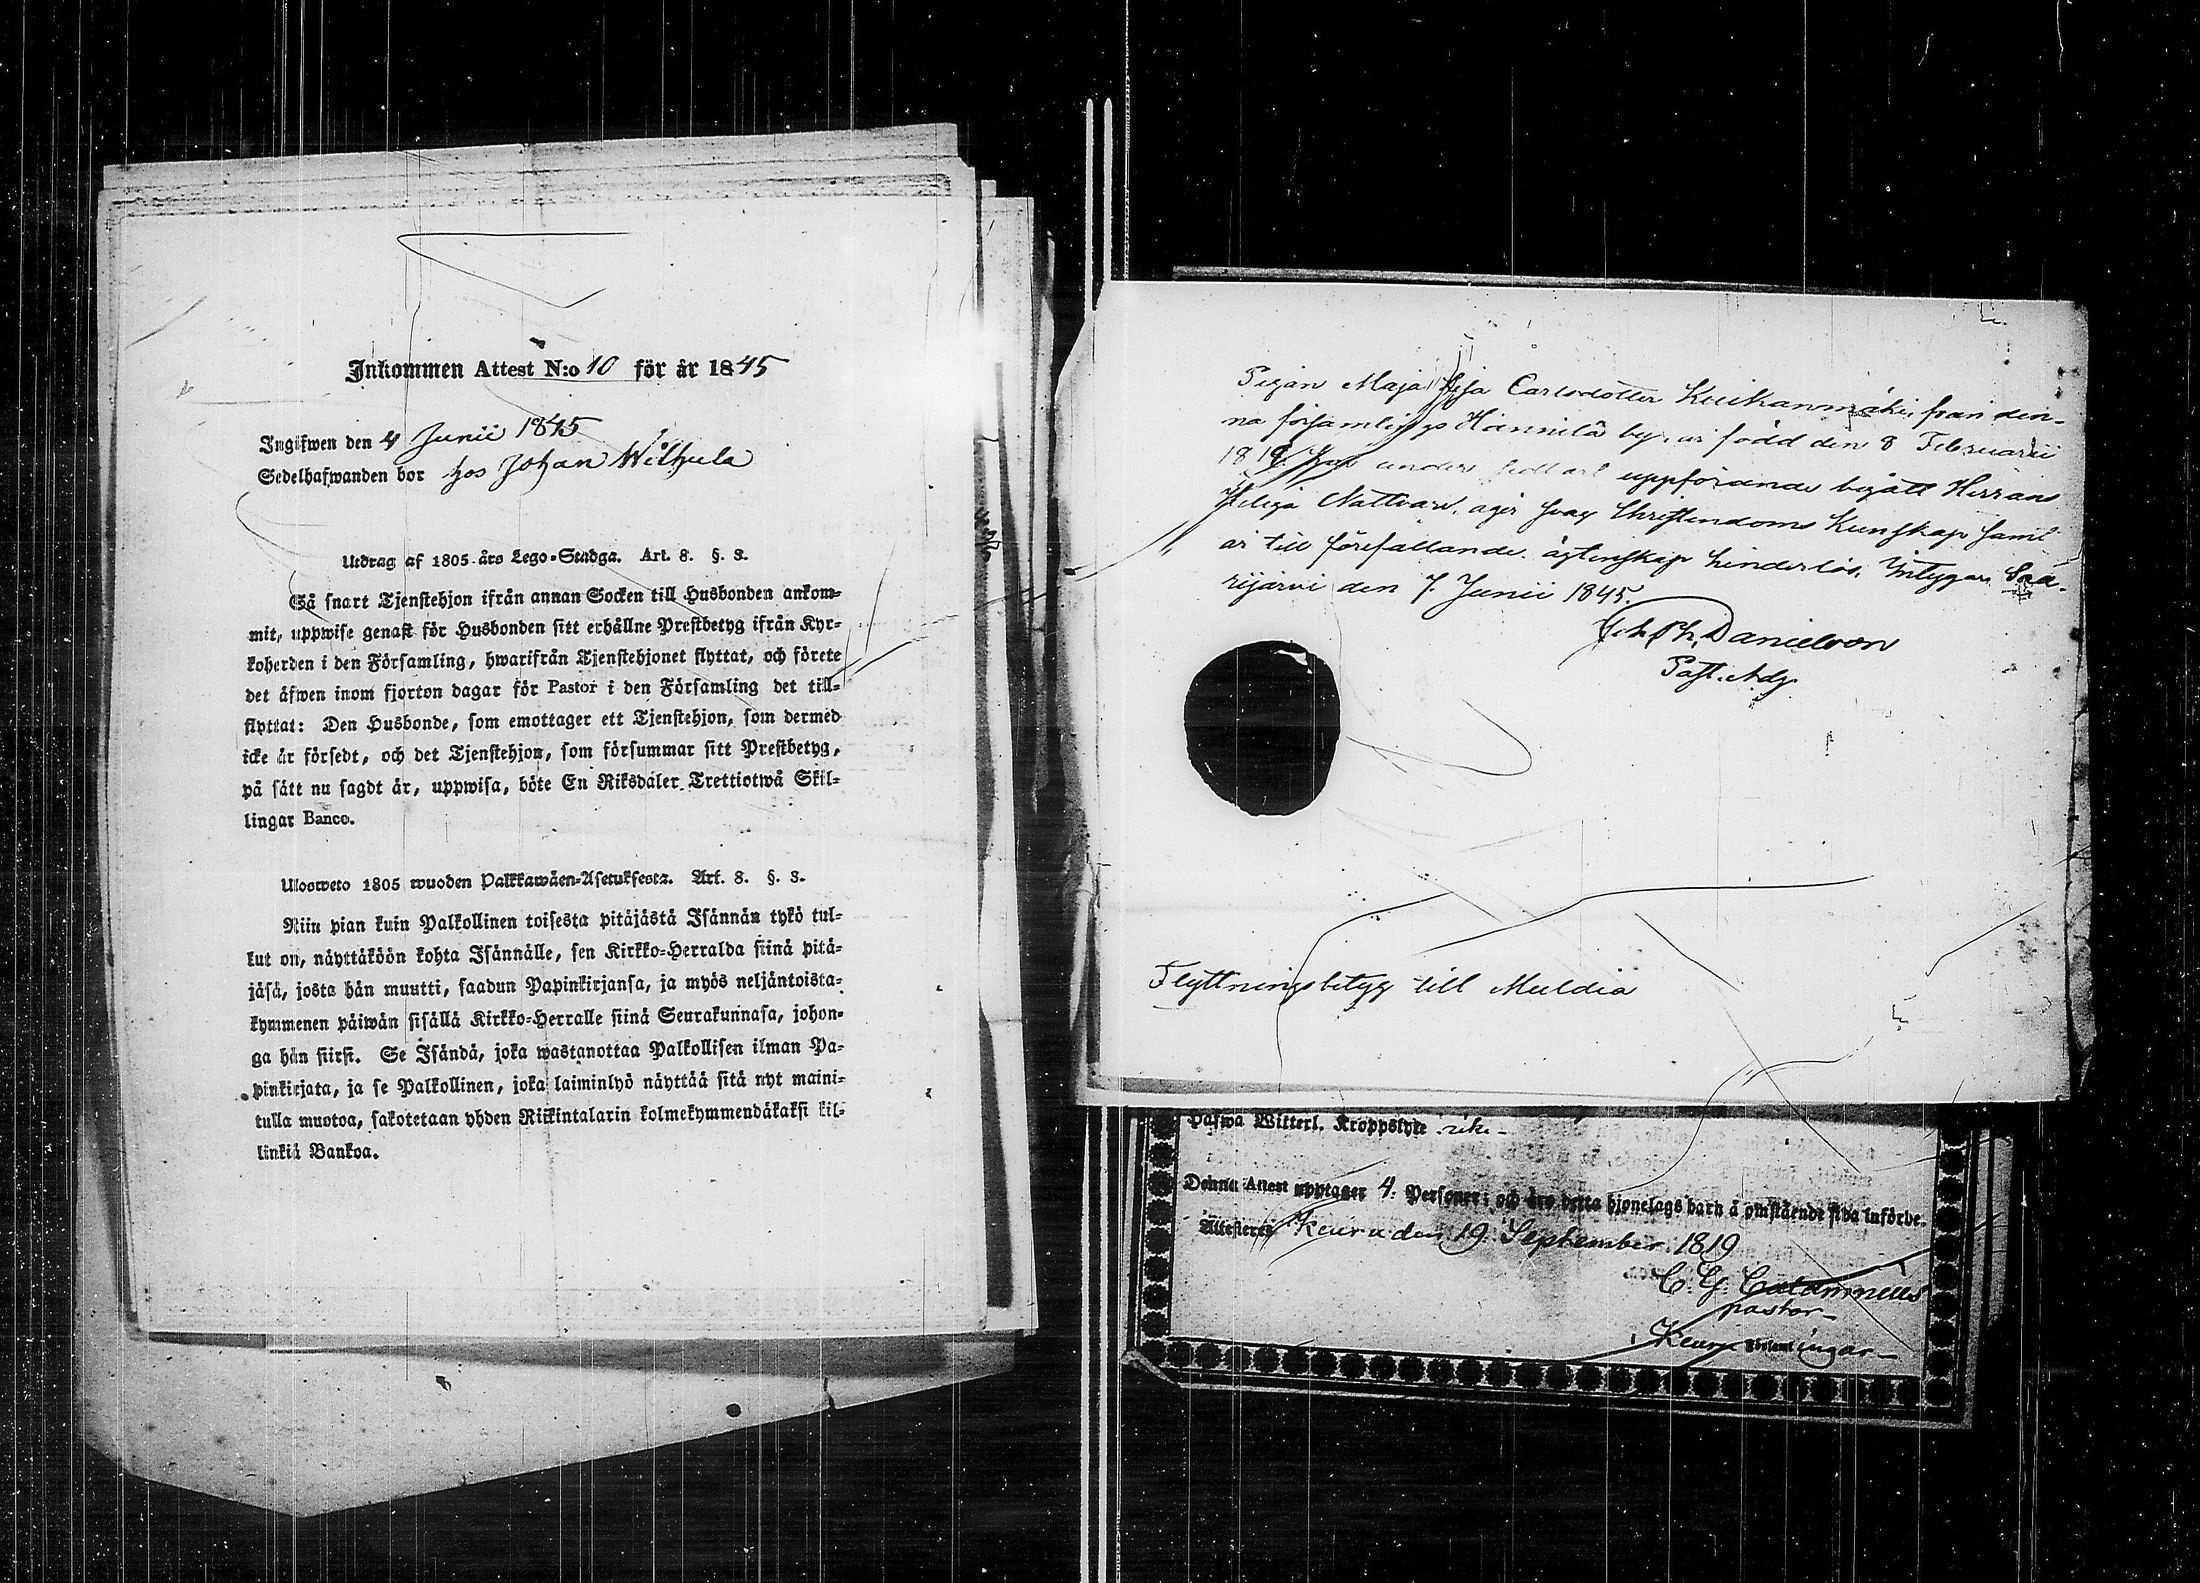 Inkommen Attest N:o 10 för år 1845
Ingifwen den 4 Junii 1845
Sedelhafwanden bor hos Johan Wilhula
Utdrag af 1805 års Lego-Stadga. Art. 8. §. 3.
Så snart Tjenstehjon ifrån annan Socken till Husbonden ankom-
mit, uppwise genast för Husbonden sitt erhållne Prestbetyg ifrån Kyr-
koherden i den Församling, hwarifrån Tjenstehjonet flyttat, och förete
det äfwen inom fjorton dagar för Pastor i den Församling det till-
flyttat: Den Husbonde, som emottager ett Tjenstehjon, som dermed
icke är försedt, och det Tjenstehjon, som försummar sitt Prestbetyg,
på sätt nu sagdt är, uppwisa, böte En Riksdaler Trettiotwå Skil-
lingar Banco.
Ulosweto 1805 wuoden Palkkawäen-Asetuksesta. Art. 8. §. 3.
Niin pian kuin Palkollinen toisesta pitäjästä Isännän tykö tul-
lut on, näyttäköön kohta Isännälle, sen Kirkko-Herralda siinä pitä-
jäsä, josta hän muutti, saadun Papinkirjansa, ja myös neljäntoista-
kymmenen päiwän sisällä Kirkko-Herralle siinä Seurakunnasa, johon-
ga hän siirsi. Se Isändä, joka wastanottaa Palkollisen ilman Pa-
pinkirjata, ja se Palkollinen, joka laiminlyö näyttää sitä nyt maini-
tulla muotoa, sakotetaan yhden Riikintalarin kolmekymmendäkaksi kil-
linkiä Bankoa.
Pigan Maja Lisa Carlsdotter Kuikanmäki från den-
na församlings Hännilä by, är född den 8 Februarii
under uppförande begått Herrans
Heliga Nattvard, äger svag Christendoms Kunskap samt
är till förefallande ägtenskap hinderlös, Intygar Saa-
rijärvi den 7 Junii 1845.
Joh. Ph. Danielson
Past. Adj.
Flyttningsbetyg till Muldia
Påfwa Witterl. Kroppslyte
Denna Attest upptager 4 Personer; och äro detta hjonelags barn å omstående sida införde.
Attesterar Keuru den 19 September 1819
C. G. Calamnius
pastor
Keuru Församlingar